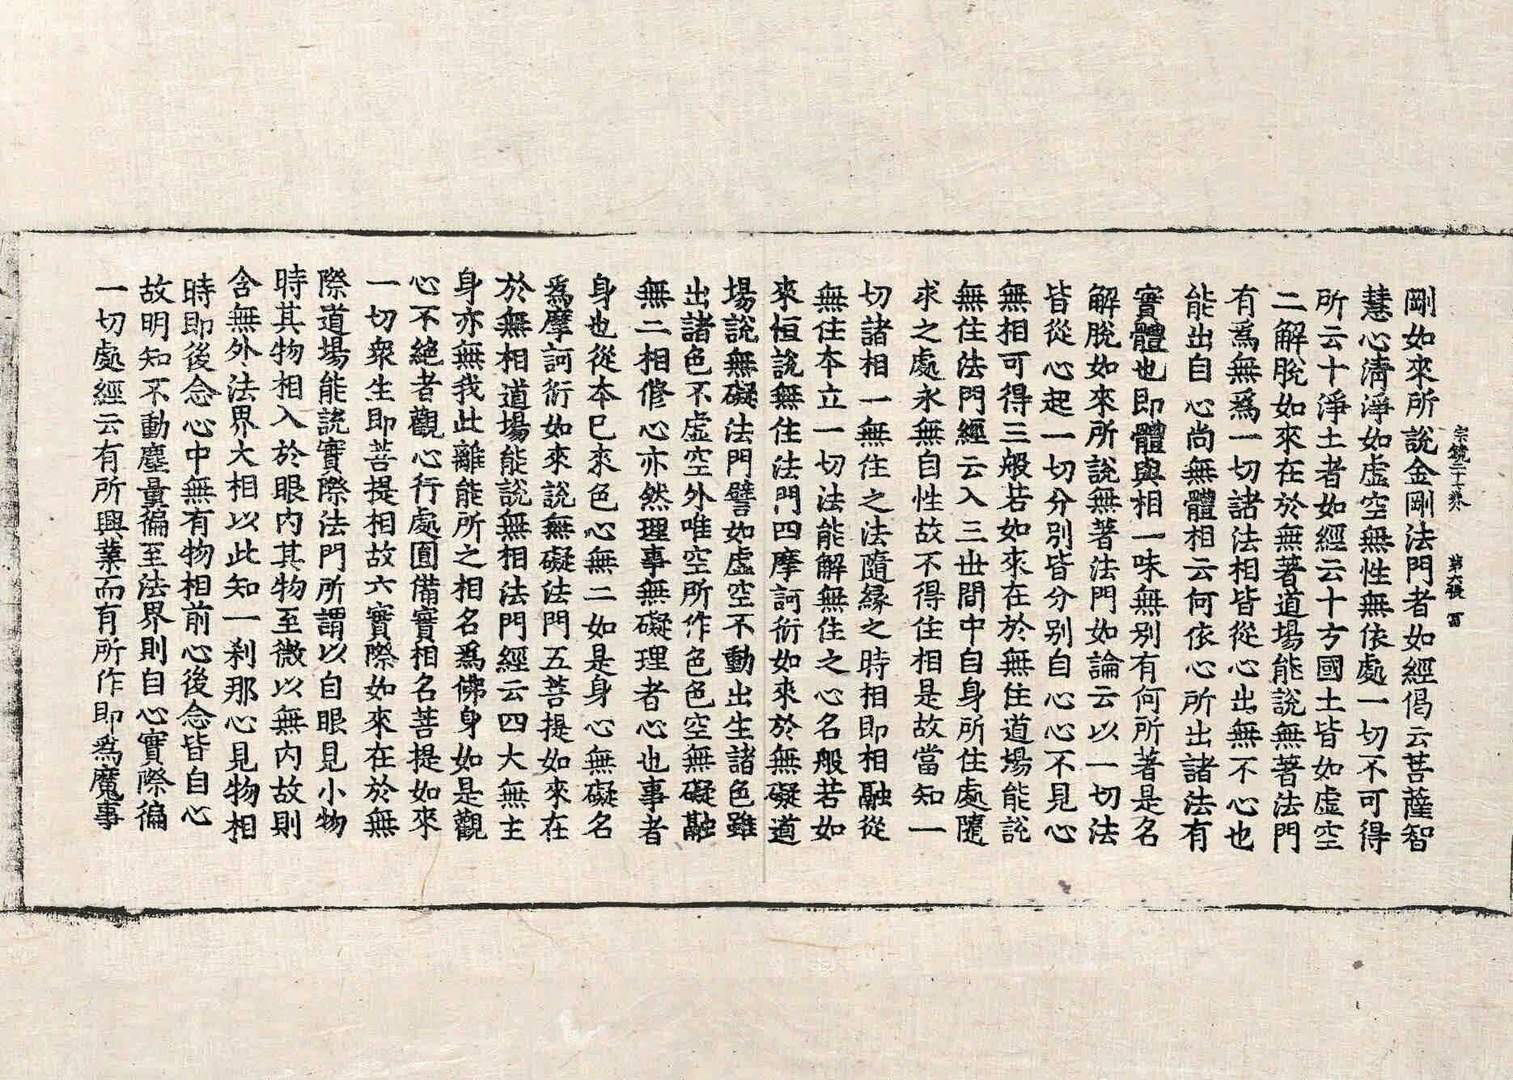 宗鏡二十七卷 第六張 百
剛如來所說金剛法門者如經偈云菩薩智
慧心清淨如虛空無性無依處一切不可得
所云十淨土者如經云十方國土皆如虛空
二解脫如來在於無著道場能說無著法門
有爲無爲一切諸法相皆從心出無不心也
能出自心尚無體相云何依心所出諸法有
實體也即體與相一味無別有何所著是名
解脫如來所說無著法門如論云以一切法
皆從心起一切分別皆分別自心心不見心
無相可得三般若如來在於無住道場能說
無住法門經云入三世間中自身所住處隨
求之處永無自性故不得住相是故當知一
切諸相一無住之法隨緣之時相即相融從
無住本立一切法能解無住之心名般若如
來恒說無住法門四摩訶衍如來於無礙道
場說無礙法門譬如虛空不動出生諸色雖
出諸色不虛空外唯空所作色色空無礙融
無二相修心亦然理事無礙理者心也事者
身也從本已來色心無二如是身心無礙名
爲摩訶衍如來說無礙法門五菩提如來在
於無相道場能說無相法門經云四大無主
身亦無我此離能所之相名爲佛身如是觀
心不絕者觀心行處圓備實相名菩提如來
一切衆生即菩提相故六實際如來在於無
際道場能說實際法門所謂以自眼見小物
時其物相入於眼內其物至微以無內故則
含無外法界大相以此知一剎那心見物相
時即後念心中無有物相前心後念皆自心
故明知不動塵量徧至法界則自心實際徧
一切處經云有所興業而有所作即爲魔事